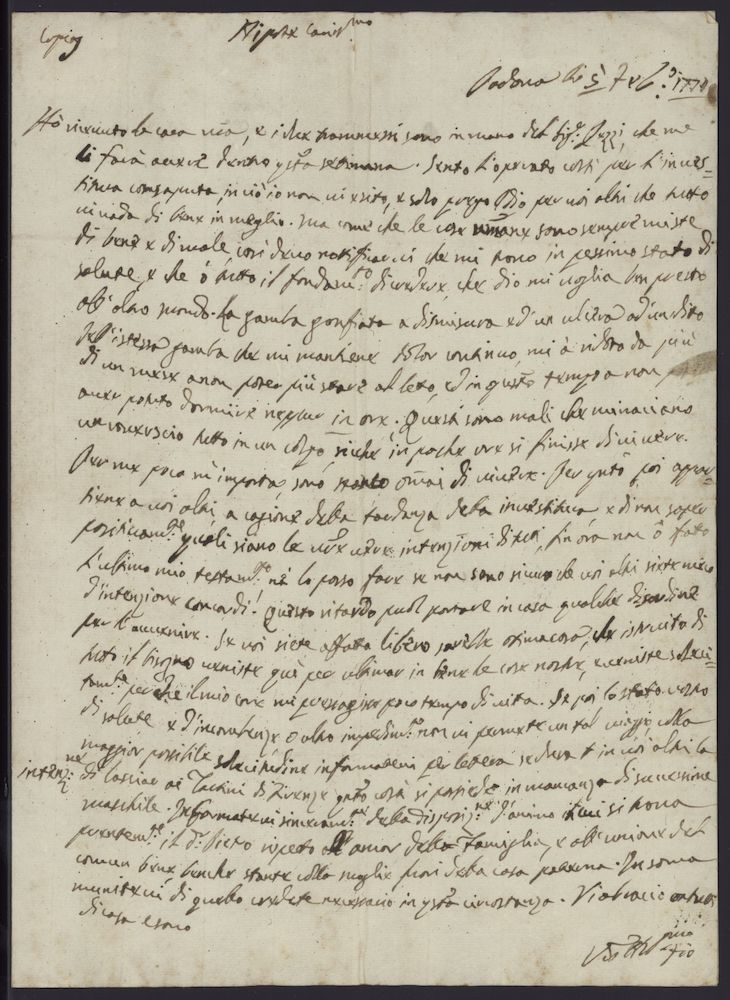 Copia
Nipote Cariss.mo
Padova li 5 7bre 1774
Hò ricevuto la cara vra, e i due trammessi sono in mano del Sigr. Pozzi, che me
li farà avere dentro qsta settimana. Sento l'operato costì per l'inves-
titura consaputa, in ciò io non vi esito, e solo prego Dio per voi altri che tutto
vi vada di bene in meglio. Ma come che le cose umane sono sempre miste
di bene e di male così devo notificarvi che mi trovo in pessimo stato di
salute, e che ò tutto il fondamto. di credere, che Dio mi voglia ben presto
all'altro mondo. La gamba gonfiata a dismisura e d'un ulcera ad un dito
dell'istessa gamba che mi mantiene dolor continuo, mi à ridotto da più
di un mese a non poter più stare al letto, ed in questo tempo a non
aver potuto dormire neppur in ore. Questi sono mali che minaciano
un rovescio tutto in un colpo, sicche in poche ore si finisse di vivere.
Per me poco m'importa, sono stanco ormai di vivere. Per qnto poi appar-
tiene a voi altri, a cagione della tardanza della investitura e di non saper
positivamte quali siano le vre vere intenzioni di tutti, fin ora non ò fato
l'ultimo mio testamto. nè lo posso fare se non sono sicuro che voi altri siete
d'intenzione concordi. Questo ritardo puol portare in casa qualche disordine
per l'avvenire. Se voi siete affatto libero sarebbe ottima cosa, che istruito di
tutto il bisogno veniste quì per ultimar in bene le cose nostre, e veniste solleci-
tamte. perche il mio core mi presagisce poco tempo di vita. Se poi lo stato vostro
di salute e d'incombenze o altro impedimto non vi permette un tal viaggio colla
maggior possibile solecitudine informatemi per lettera se dura in voi altri la
intenzne di lasciar ai Tacchini di Firenze qnto costì si possiede in mancanza di successione
maschile. Informatevi sinceramte della disposizne d'animo in cui si trova
presentemte. il Dr. Pietro rispetto all'amor della Famiglia, e all'unione del
comun bene, benche stante colla moglie fuori della casa paterna. In soma
munitevi di quello credete necessario in qsta circostanza. Vi abracio con tutti
di casa e sono
Vro
Zio